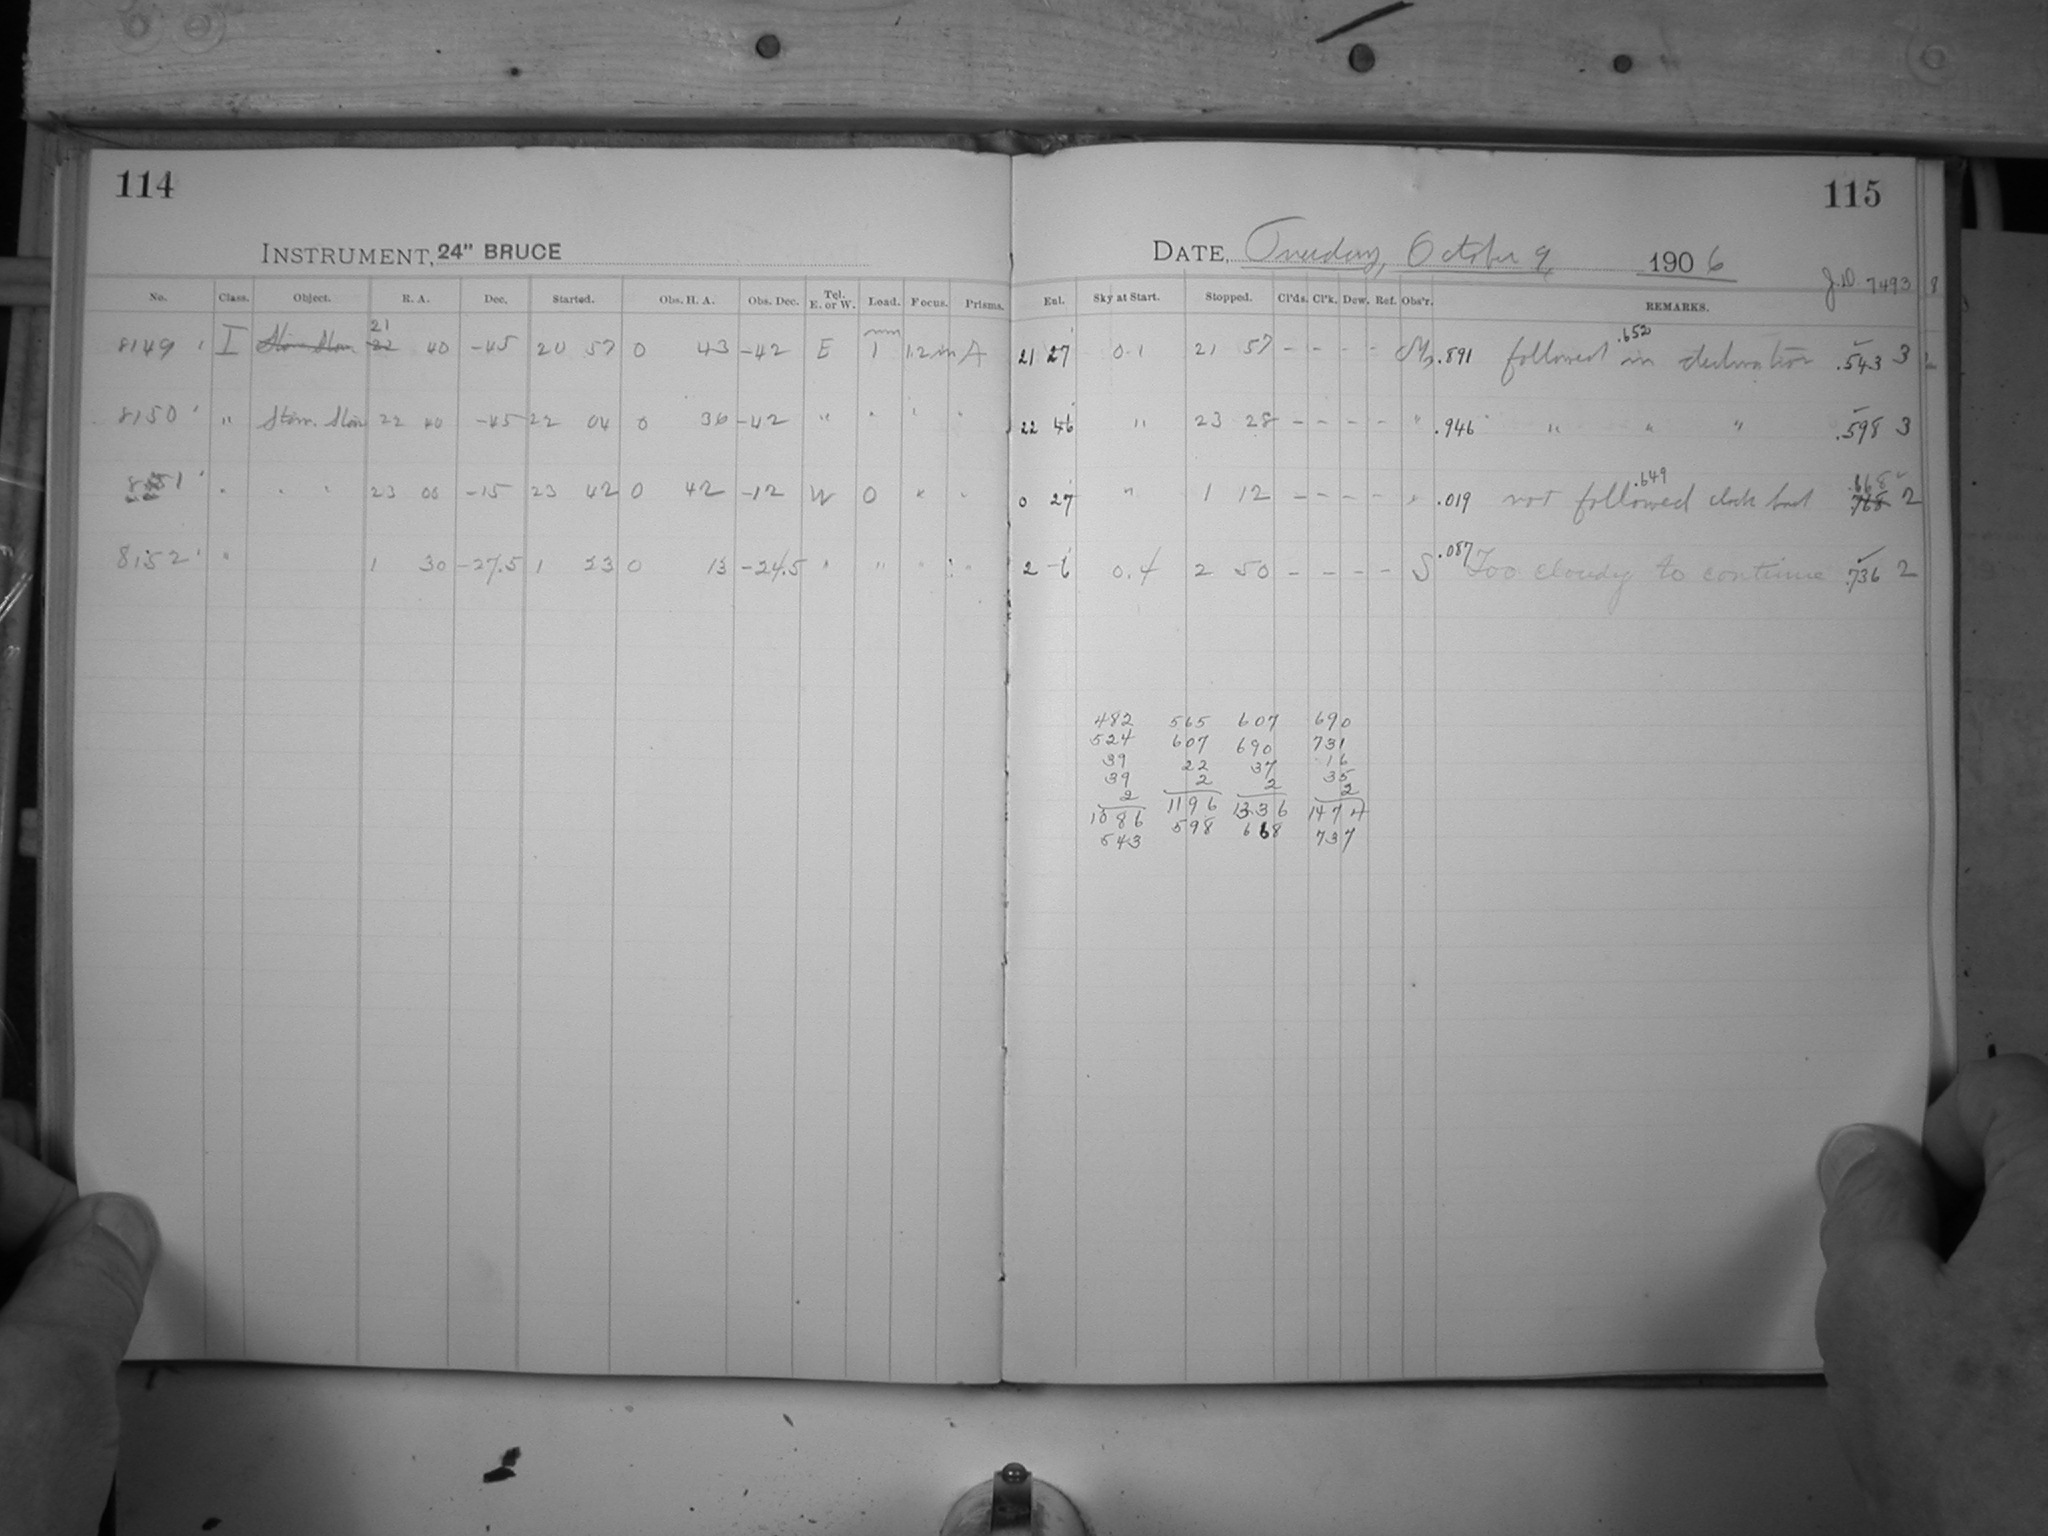 114
INSTRUMENT, 24" BRUCE
No. Class. Object. R. A. Dec. Started. Obs. H. A. Obs. Dec. Tel. E. or W. Load. Focus. Prisms.
21
8149 I 22 40 -45 20 57 0 43 -42 E 1 12 in A
8150 " 22 40 -45 22 04 0 36 -42 " " " "
8151 " " " 23 00 -15 23 42 0 42 -12 W 0 " "
8152 " 1 30 -27.5 1 23 0 13 -24.5 " " " "
115
DATE, Tuesday, October 9, 1906
J.D. 7493 8
Eul. Sky at Start. Stopped. Cl'ds. Cl'k. Dew. Ref. Obs'r. REMARKS.
21 27 0.1 21 57 - - - - .891 followed .652 in declination .543 3
22 46 " 23 28 - - - - " .946 " " " .598 3
0 27 " 1 12 - - - - " .019 not followed .649 clock bad .668 768 2
2 6 0.4 2 50 - - - - S .087 Too cloudy to continue .736 2
482 565 607 690
524 607 690 731
39 22 37 16
39 2 2 35
2 1196 1336 2
1086 598 668 1474
543 737